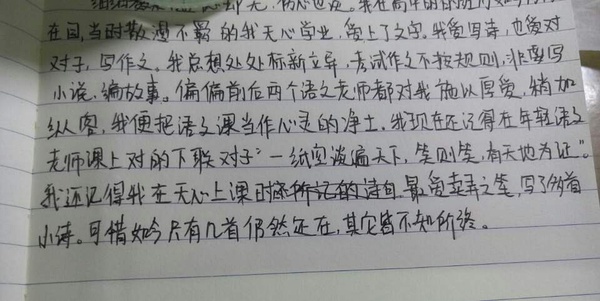 初心也没。我在高中的
在目,当时散漫不羁的我无心学业,爱上了文字。我爱写诗,也爱对
对子,写作文。我总想处处标新立异,考试作文不按规则,非要写
小说,编故事。偏偏前后两个语文老师都对我施以厚爱,稍加
纵容,我便把语文课当作心灵的净土。我现在还记得在年轻语文
老师课上对的下联对子“一纸空谈遍天下,笑则笑,有天地为证”。
我还记得我在无心上课时 所记的诗句,最爱弄之笔,写了多首
小诗。可惜如今只有几首仍然还在,其它皆不知所终。